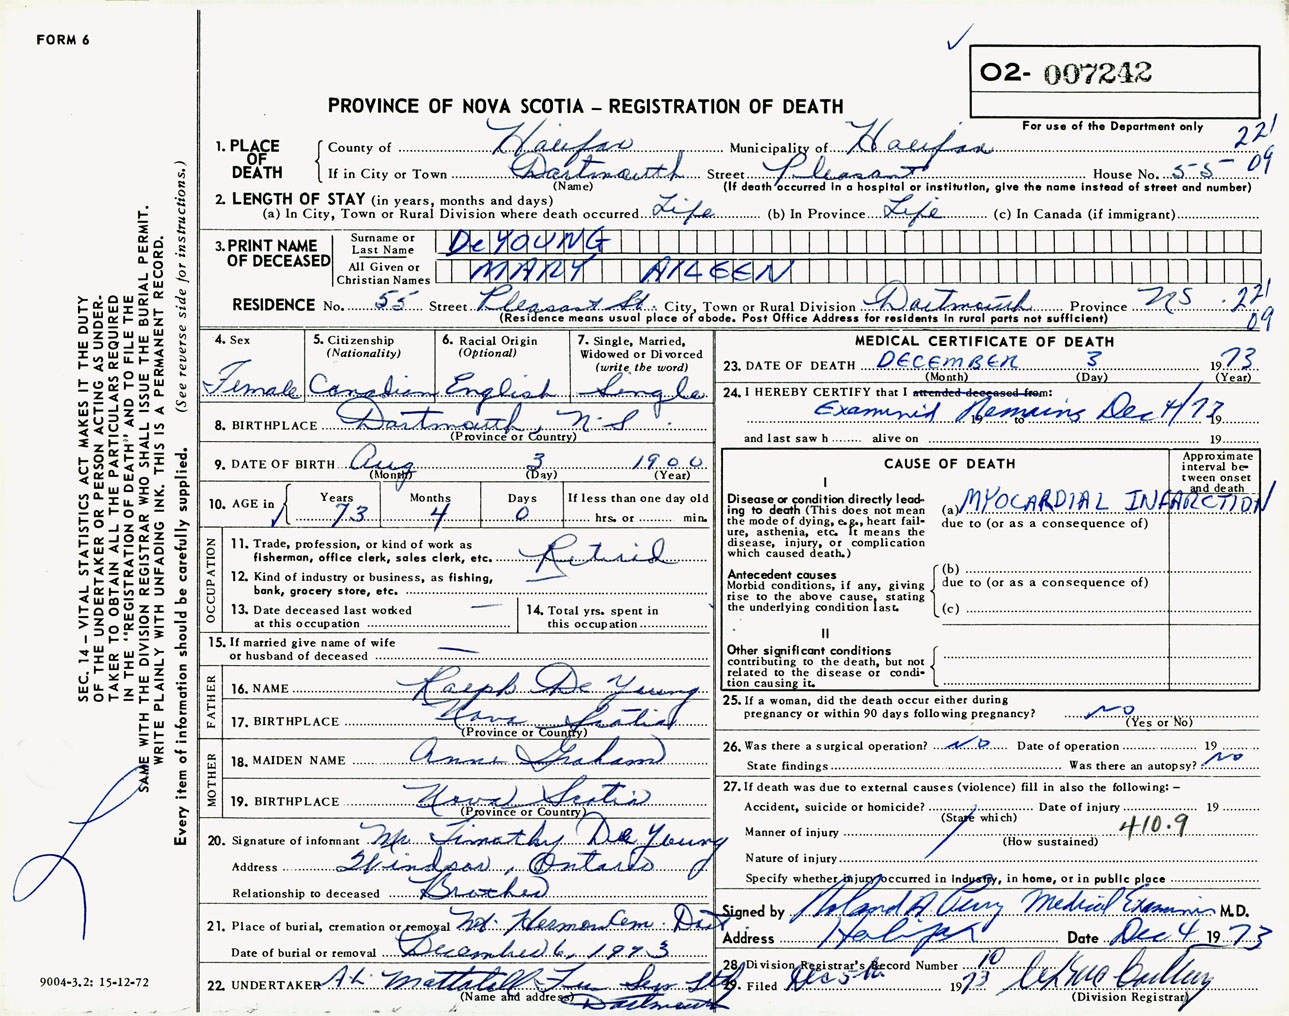 FORM 6
O2- 007242
PROVINCE OF NOVA SCOTIA – REGISTRATION OF DEATH
For use of the Department only
221
09
1. PLACE OF DEATH
County of Halifax Municipality of Halifax
If in City or Town Dartmouth Street Pleasant House No. 55
(Name) (If death occurred in a hospital or institution, give the name instead of street and number)
2. LENGTH OF STAY (in years, months and days)
(a) In City, Town or Rural Division where death occurred Life (b) In Province Life (c) In Canada (if immigrant)
3. PRINT NAME OF DECEASED
Surname or Last Name DeYOUNG
All Given or Christian Names MARY AILEEN
RESIDENCE No. 55 Street Pleasant St. City, Town or Rural Division Dartmouth Province NS 221
09
(Residence means usual place of abode. Post Office Address for residents in rural parts not sufficient)
4. Sex
Female
5. Citizenship (Nationality)
Canadian
6. Racial Origin (Optional)
English
7. Single, Married, Widowed or Divorced (write the word)
Single
8. BIRTHPLACE Dartmouth, N-S.
(Province or Country)
9. DATE OF BIRTH Aug 3 1900
(Month) (Day) (Year)
10. AGE in
Years 73
Months 4
Days 0
If less than one day old
hrs. or min.
OCCUPATION
11. Trade, profession, or kind of work as
fisherman, office clerk, sales clerk, etc. Retired
12. Kind of industry or business, as fishing,
bank, grocery store, etc.
13. Date deceased last worked
at this occupation
14. Total yrs. spent in
this occupation
15. If married give name of wife
or husband of deceased
FATHER
16. NAME Ralph De Young
17. BIRTHPLACE Nova Scotia
(Province or Country)
MOTHER
18. MAIDEN NAME Anne Graham
19. BIRTHPLACE Nova Scotia
(Province or Country)
20. Signature of informant Mr. Timothy De Young
Address Windsor, Ontario
Relationship to deceased Brother
21. Place of burial, cremation or removal Mt. Hermon Cem. Dart.
Date of burial or removal December 6, 1973
22. UNDERTAKER Mattatall
(Name and address) Dartmouth
MEDICAL CERTIFICATE OF DEATH
23. DATE OF DEATH DECEMBER 3 1973
(Month) (Day) (Year)
24. I HEREBY CERTIFY that I attended deceased from:
Examined Remains Dec 4/73 19 to 19
and last saw h alive on 19
CAUSE OF DEATH
Approximate interval between onset and death
I
Disease or condition directly leading to death (This does not mean the mode of dying, e.g., heart failure, asthenia, etc. It means the disease, injury, or complication which caused death.)
(a) MYOCARDIAL INFARCTION
due to (or as a consequence of)
Antecedent causes
Morbid conditions, if any, giving rise to the above cause, stating the underlying condition last.
(b)
due to (or as a consequence of)
(c)
II
Other significant conditions
contributing to the death, but not related to the disease or condition causing it.
25. If a woman, did the death occur either during
pregnancy or within 90 days following pregnancy? NO
(Yes or No)
26. Was there a surgical operation? NO Date of operation 19
State findings Was there an autopsy? NO
27. If death was due to external causes (violence) fill in also the following: –
Accident, suicide or homicide? Date of injury 19
(State which)
Manner of injury 410.9
(How sustained)
Nature of injury
Specify whether injury occurred in industry, in home, or in public place
Signed by Roland A Perry Medical Examiner M.D.
Address Halifax Date Dec 4 1973
28. Division Registrar's Record Number 10
29. Filed Dec 5th 1973
(Division Registrar)
SEC. 14 – VITAL STATISTICS ACT MAKES IT THE DUTY
OF THE UNDERTAKER OR PERSON ACTING AS UNDER-
TAKER TO OBTAIN ALL THE PARTICULARS REQUIRED
IN THE "REGISTRATION OF DEATH" AND TO FILE THE
SAME WITH THE DIVISION REGISTRAR WHO SHALL ISSUE THE BURIAL PERMIT.
WRITE PLAINLY WITH UNFADING INK. THIS IS A PERMANENT RECORD.
Every item of information should be carefully supplied. (See reverse side for instructions.)
9004-3.2: 15-12-72